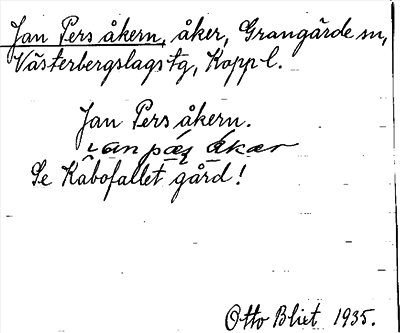 Jan Pers åkern, åker, Grangärde sn,
Västerbergslags tg, Kopp l.
Jan Pers åkern.
Se Kåbofallet gård!
Otto Blixt 1935.